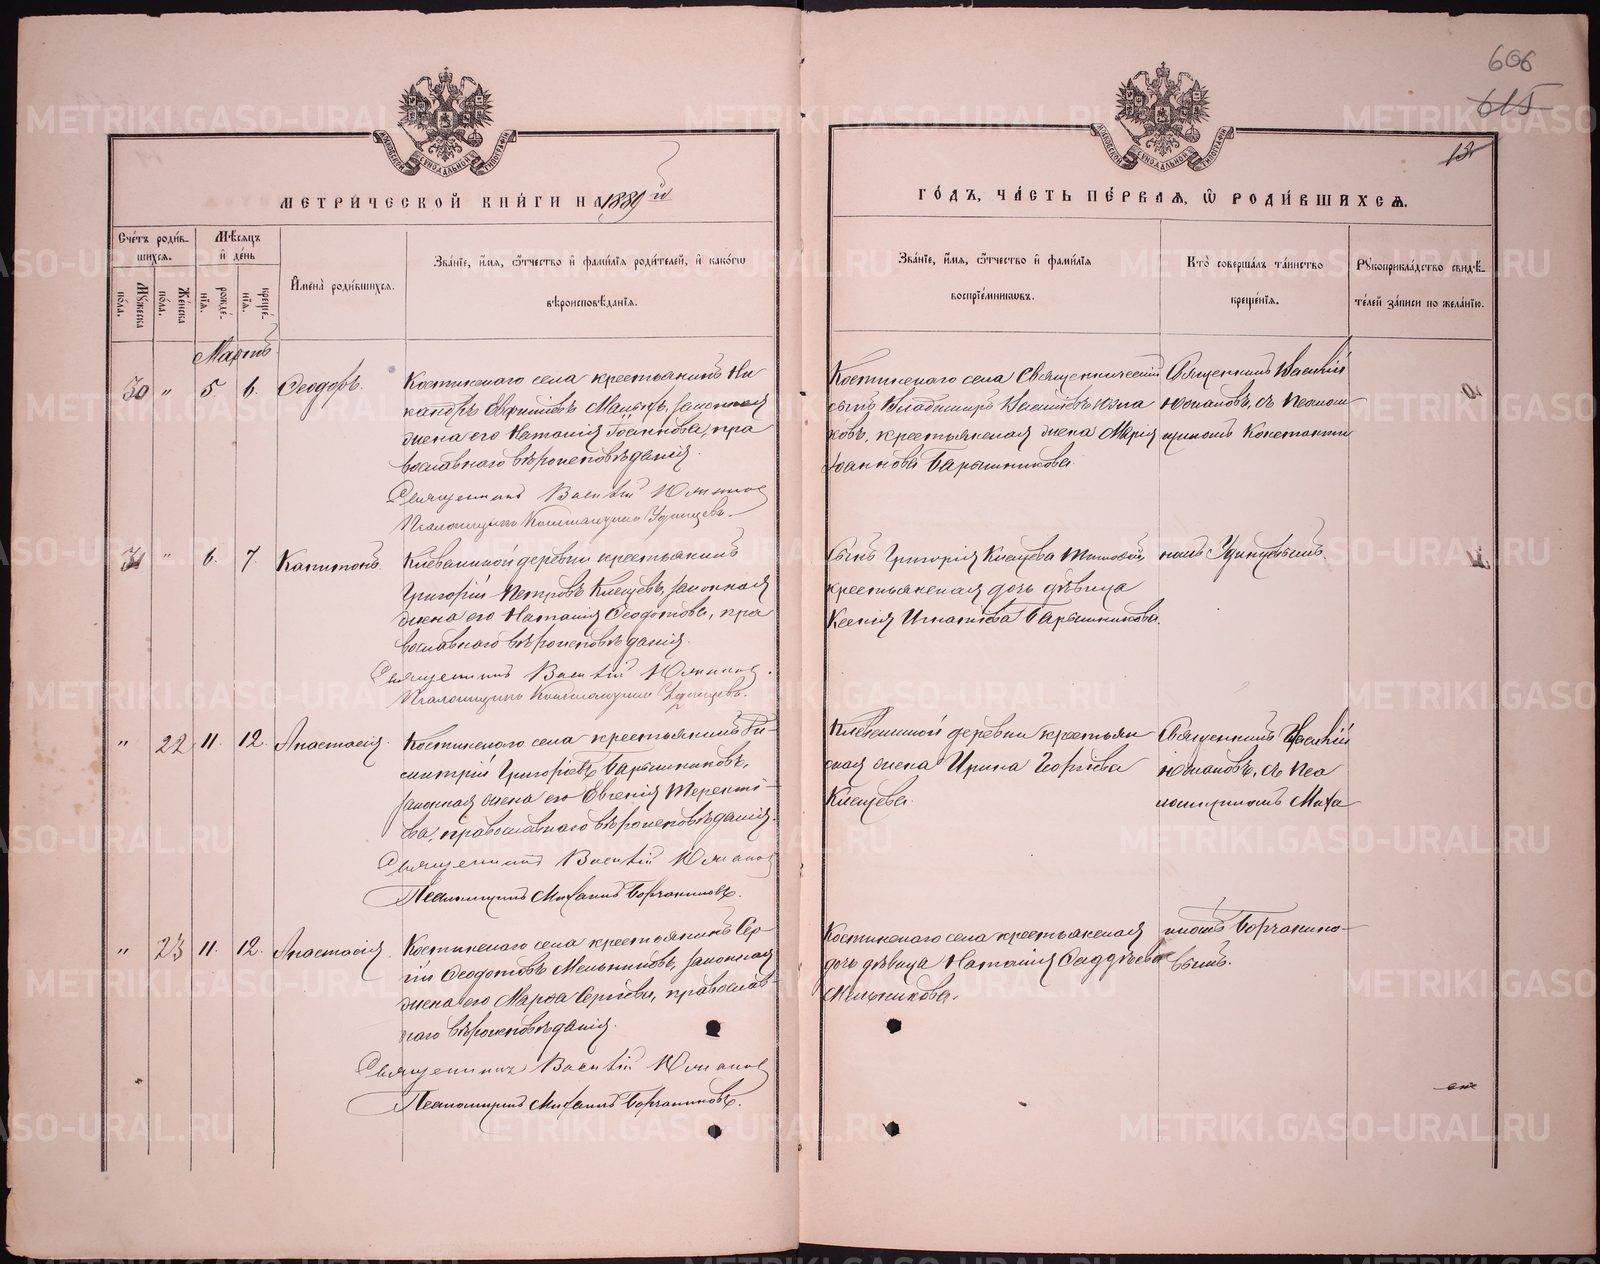 606
615
МЕТРИЧЕСКОЙ КНИГИ НА 1889 й
ГОДЪ, ЧАСТЬ ПЕРВАЯ, Ѿ РОДИВШИХСЯ.
Счетъ родив-
шихся.
Мужеска пола.
Женска пола.
Мѣсяцъ
и день
рожде-
нія.
креще-
нія.
Имена родившихся.
Званіе, имя, отчество и фамилія родителей, и какого
вѣроисповѣданія.
Званіе, имя, отчество и фамилія
воспріемниковъ.
Кто совершалъ таинство
крещенія.
Рукоприкладство свидѣ-
телей записи по желанію.
Мартъ
30 " 5 6. Ѳеодоръ.
Костинскаго села крестьянинъ Ни
каноръ законная
жена его Наталія Іоаннова, пра
вославнаго вѣроисповѣданія.
Священникъ Василій Юмановъ
Псаломщикъ Константинъ Удинцевъ.
Костинскаго села Священническій
сынъ Владиміръ Васильевъ Юма
новъ, крестьянская жена Марія
Іоаннова Барышникова
Священникъ Василій
Юмановъ, съ псалом
щикомъ Константи
31 " 6. 7. Капитонъ.
Клевакиной деревни крестьянинъ
Григорій Петровъ Клещевъ, законная
жена его Наталія Ѳеодотова, пра
вославнаго вѣроисповѣданія.
Священникъ Василій Юмановъ.
Псаломщикъ Константинъ Удинцевъ.
Сынъ Григорія Клещева
крестьянская дочь дѣвица
Ксенія Игнатіева Барышникова.
номъ Удинцевымъ.
" 22 11. 12. Анастасія.
Костинскаго села крестьянинъ Ди-
митрій Григоріевъ Барышниковъ,
законная жена его Евгенія Теренті-
ева, православнаго вѣроисповѣданія.
Священникъ Василій Юмановъ
Псаломщикъ Михаилъ Борчаниновъ.
Клевакиной деревни крестьян
ская жена Ирина Георгіева
Клещева.
Священникъ Василій
Юмановъ, съ пса
ломщикомъ Миха
" 23 11. 12. Анастасія.
Костинскаго села крестьянинъ Сер-
гій Ѳеодотовъ Мельниковъ, законная
жена его Марѳа Сергіева, православ-
наго вѣроисповѣданія.
Священникъ Василій Юмановъ
Псаломщикъ Михаилъ Борчаниновъ.
Костинскаго села крестьянская
дочь дѣвица Наталія Фаддѣева
Мельникова.
иломъ Борчанино-
вымъ.
METRIKI.GASO-URAL.RU